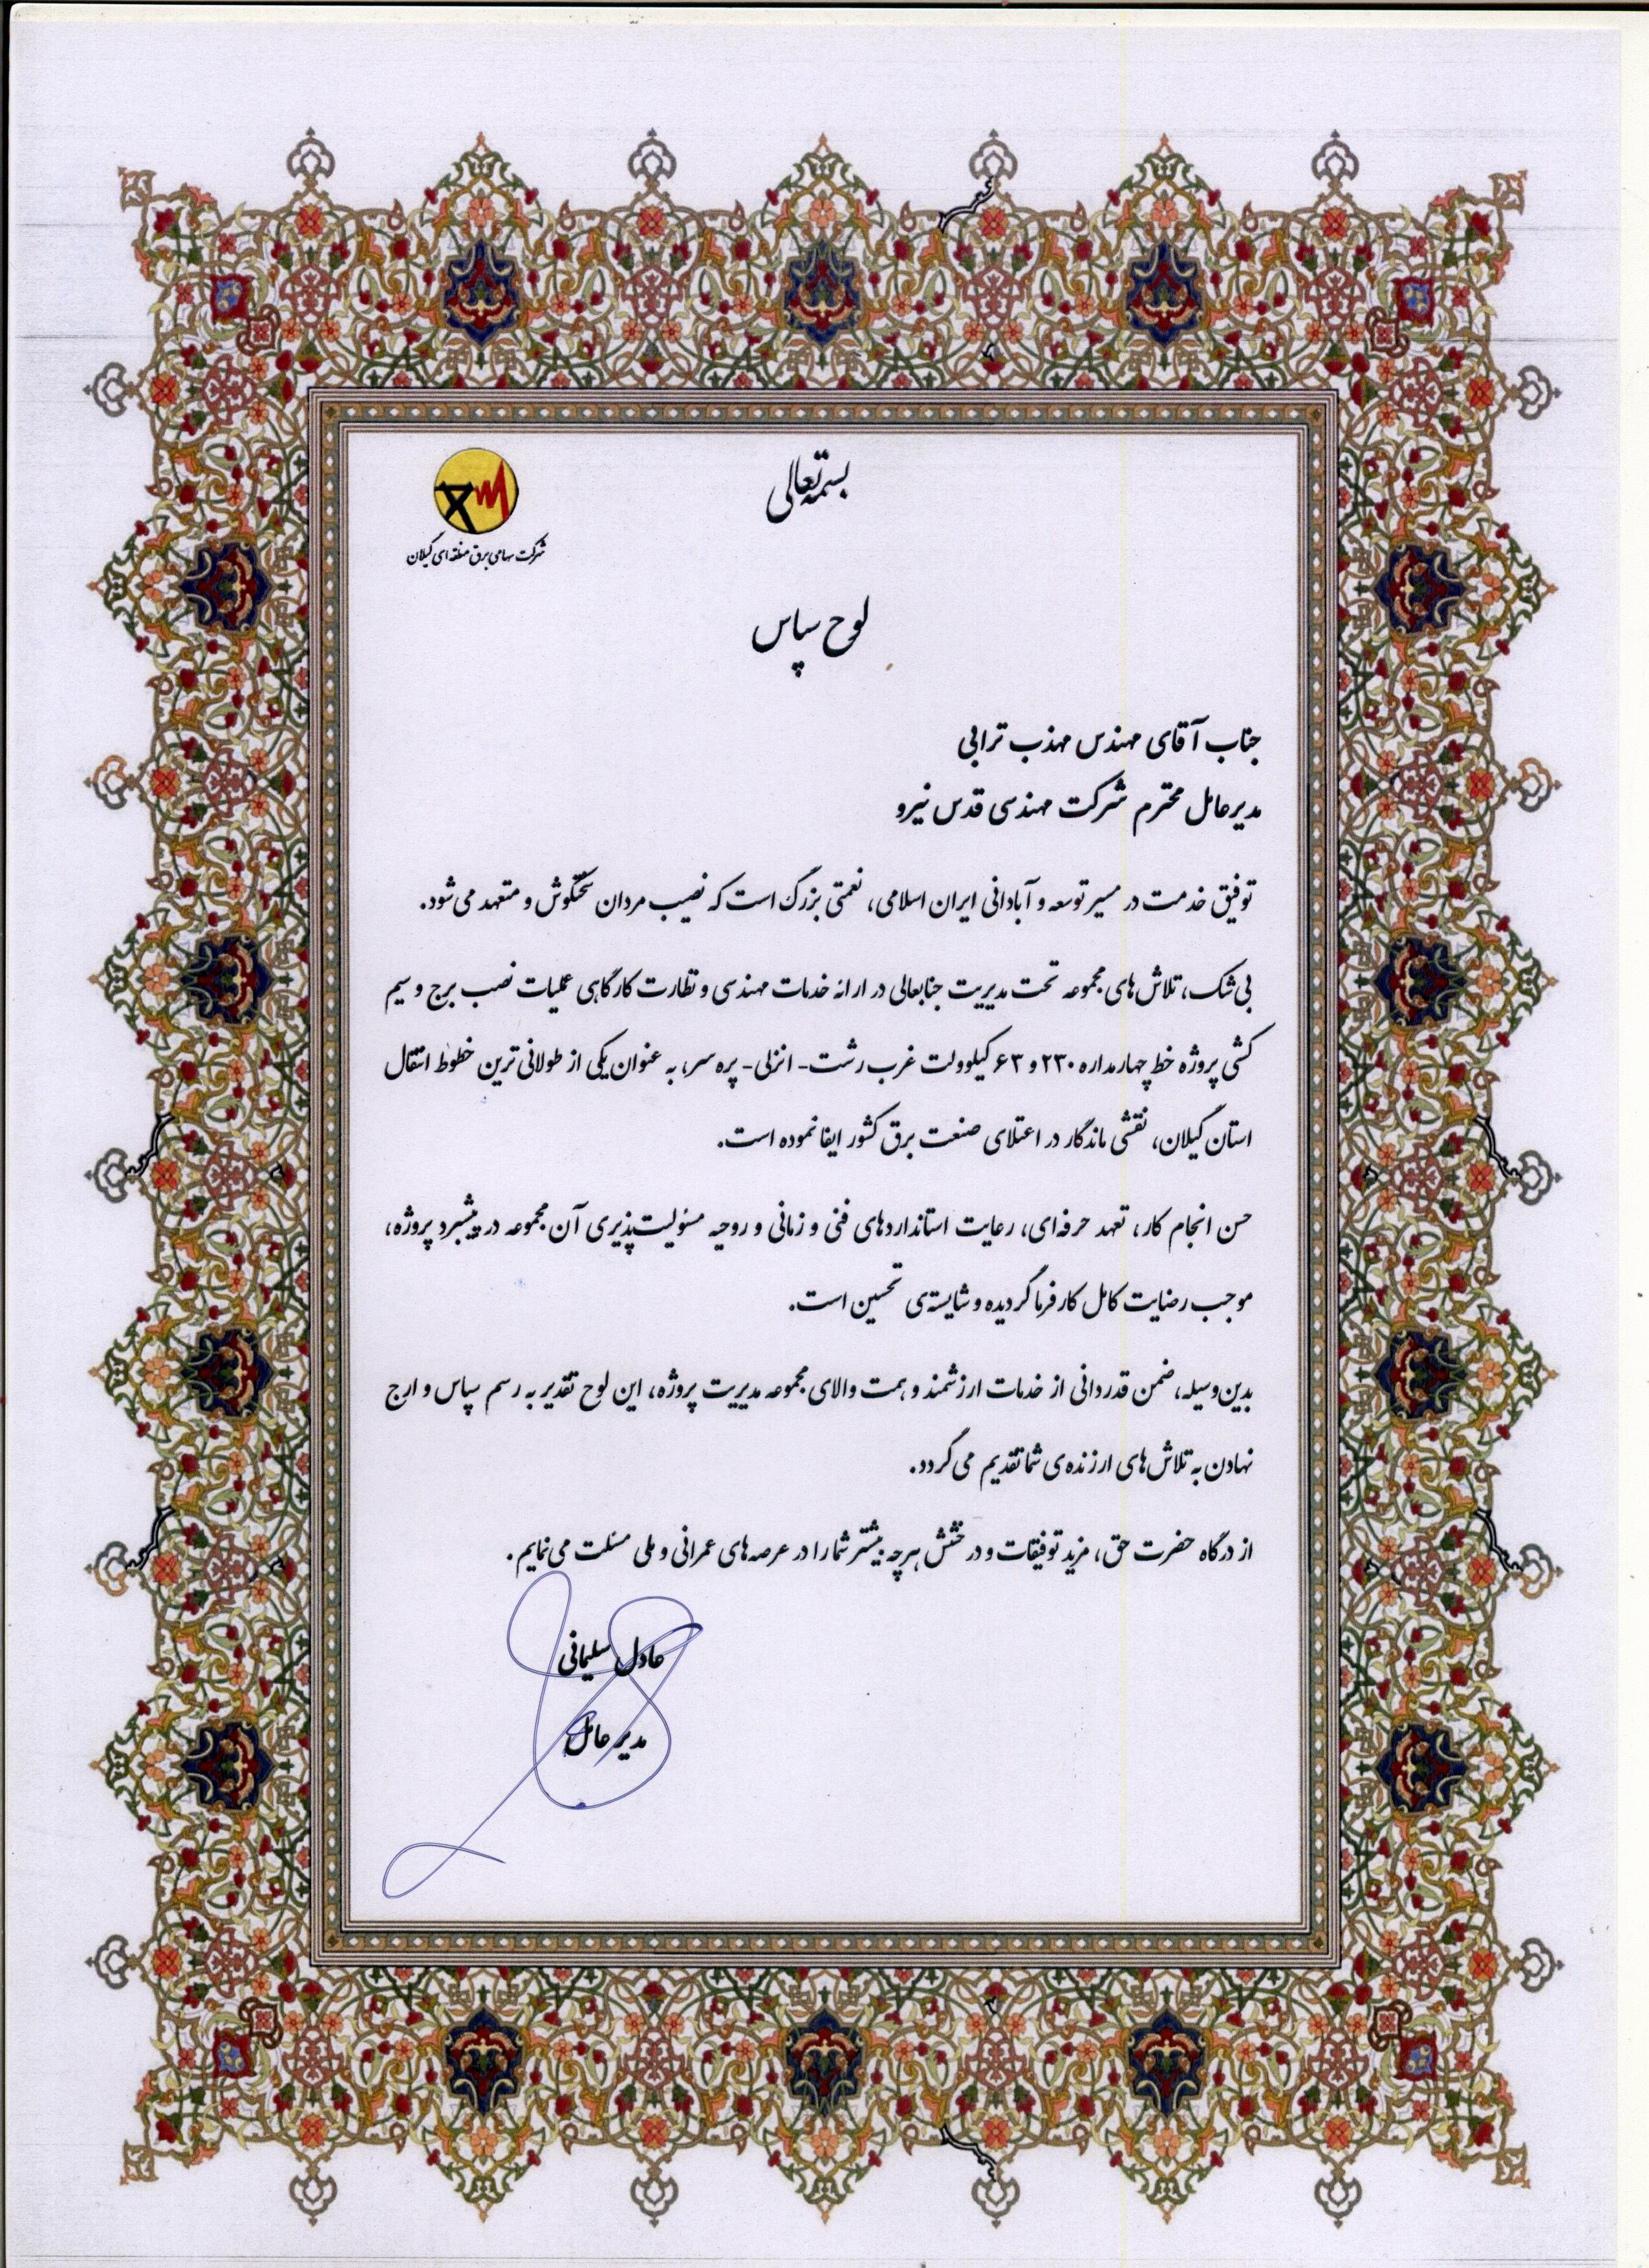 بسمه تعالی
شرکت سهامی برق منطقه ای گیلان
لوح سپاس
جناب آقای مهندس مهذب ترابی
مدیرعامل محترم شرکت مهندسی قدس نیرو
توفیق خدمت در مسیر توسعه و آبادانی ایران اسلامی، نعمتی بزرگ است که نصیب مردان سختکوش و متعهد می‌شود.
بی‌شک، تلاش‌های مجموعه تحت مدیریت جنابعالی در ارائه خدمات مهندسی و نظارت کارگاهی عملیات نصب برج و سیم
کشی پروژه خط چهارمداره ۲۳۰ و ۶۳ کیلوولت غرب رشت- انزلی- پره سر، به عنوان یکی از طولانی ترین خطوط انتقال
استان گیلان، نقشی ماندگار در اعتلای صنعت برق کشور ایفا نموده است.
حسن انجام کار، تعهد حرفه‌ای، رعایت استانداردهای فنی و زمانی و روحیه مسئولیت‌پذیری آن مجموعه در پیشبرد پروژه،
موجب رضایت کامل کارفرما گردیده و شایسته‌ی تحسین است.
بدین‌وسیله، ضمن قدردانی از خدمات ارزشمند و همت والای مجموعه مدیریت پروژه، این لوح تقدیر به رسم سپاس و ارج
نهادن به تلاش‌های ارزنده‌ی شما تقدیم می‌گردد.
از درگاه حضرت حق، مزید توفیقات و درخشش هرچه بیشتر شما را در عرصه‌های عمرانی و ملی مسئلت می‌نمایم.
عادل سلیمانی
مدیر عامل